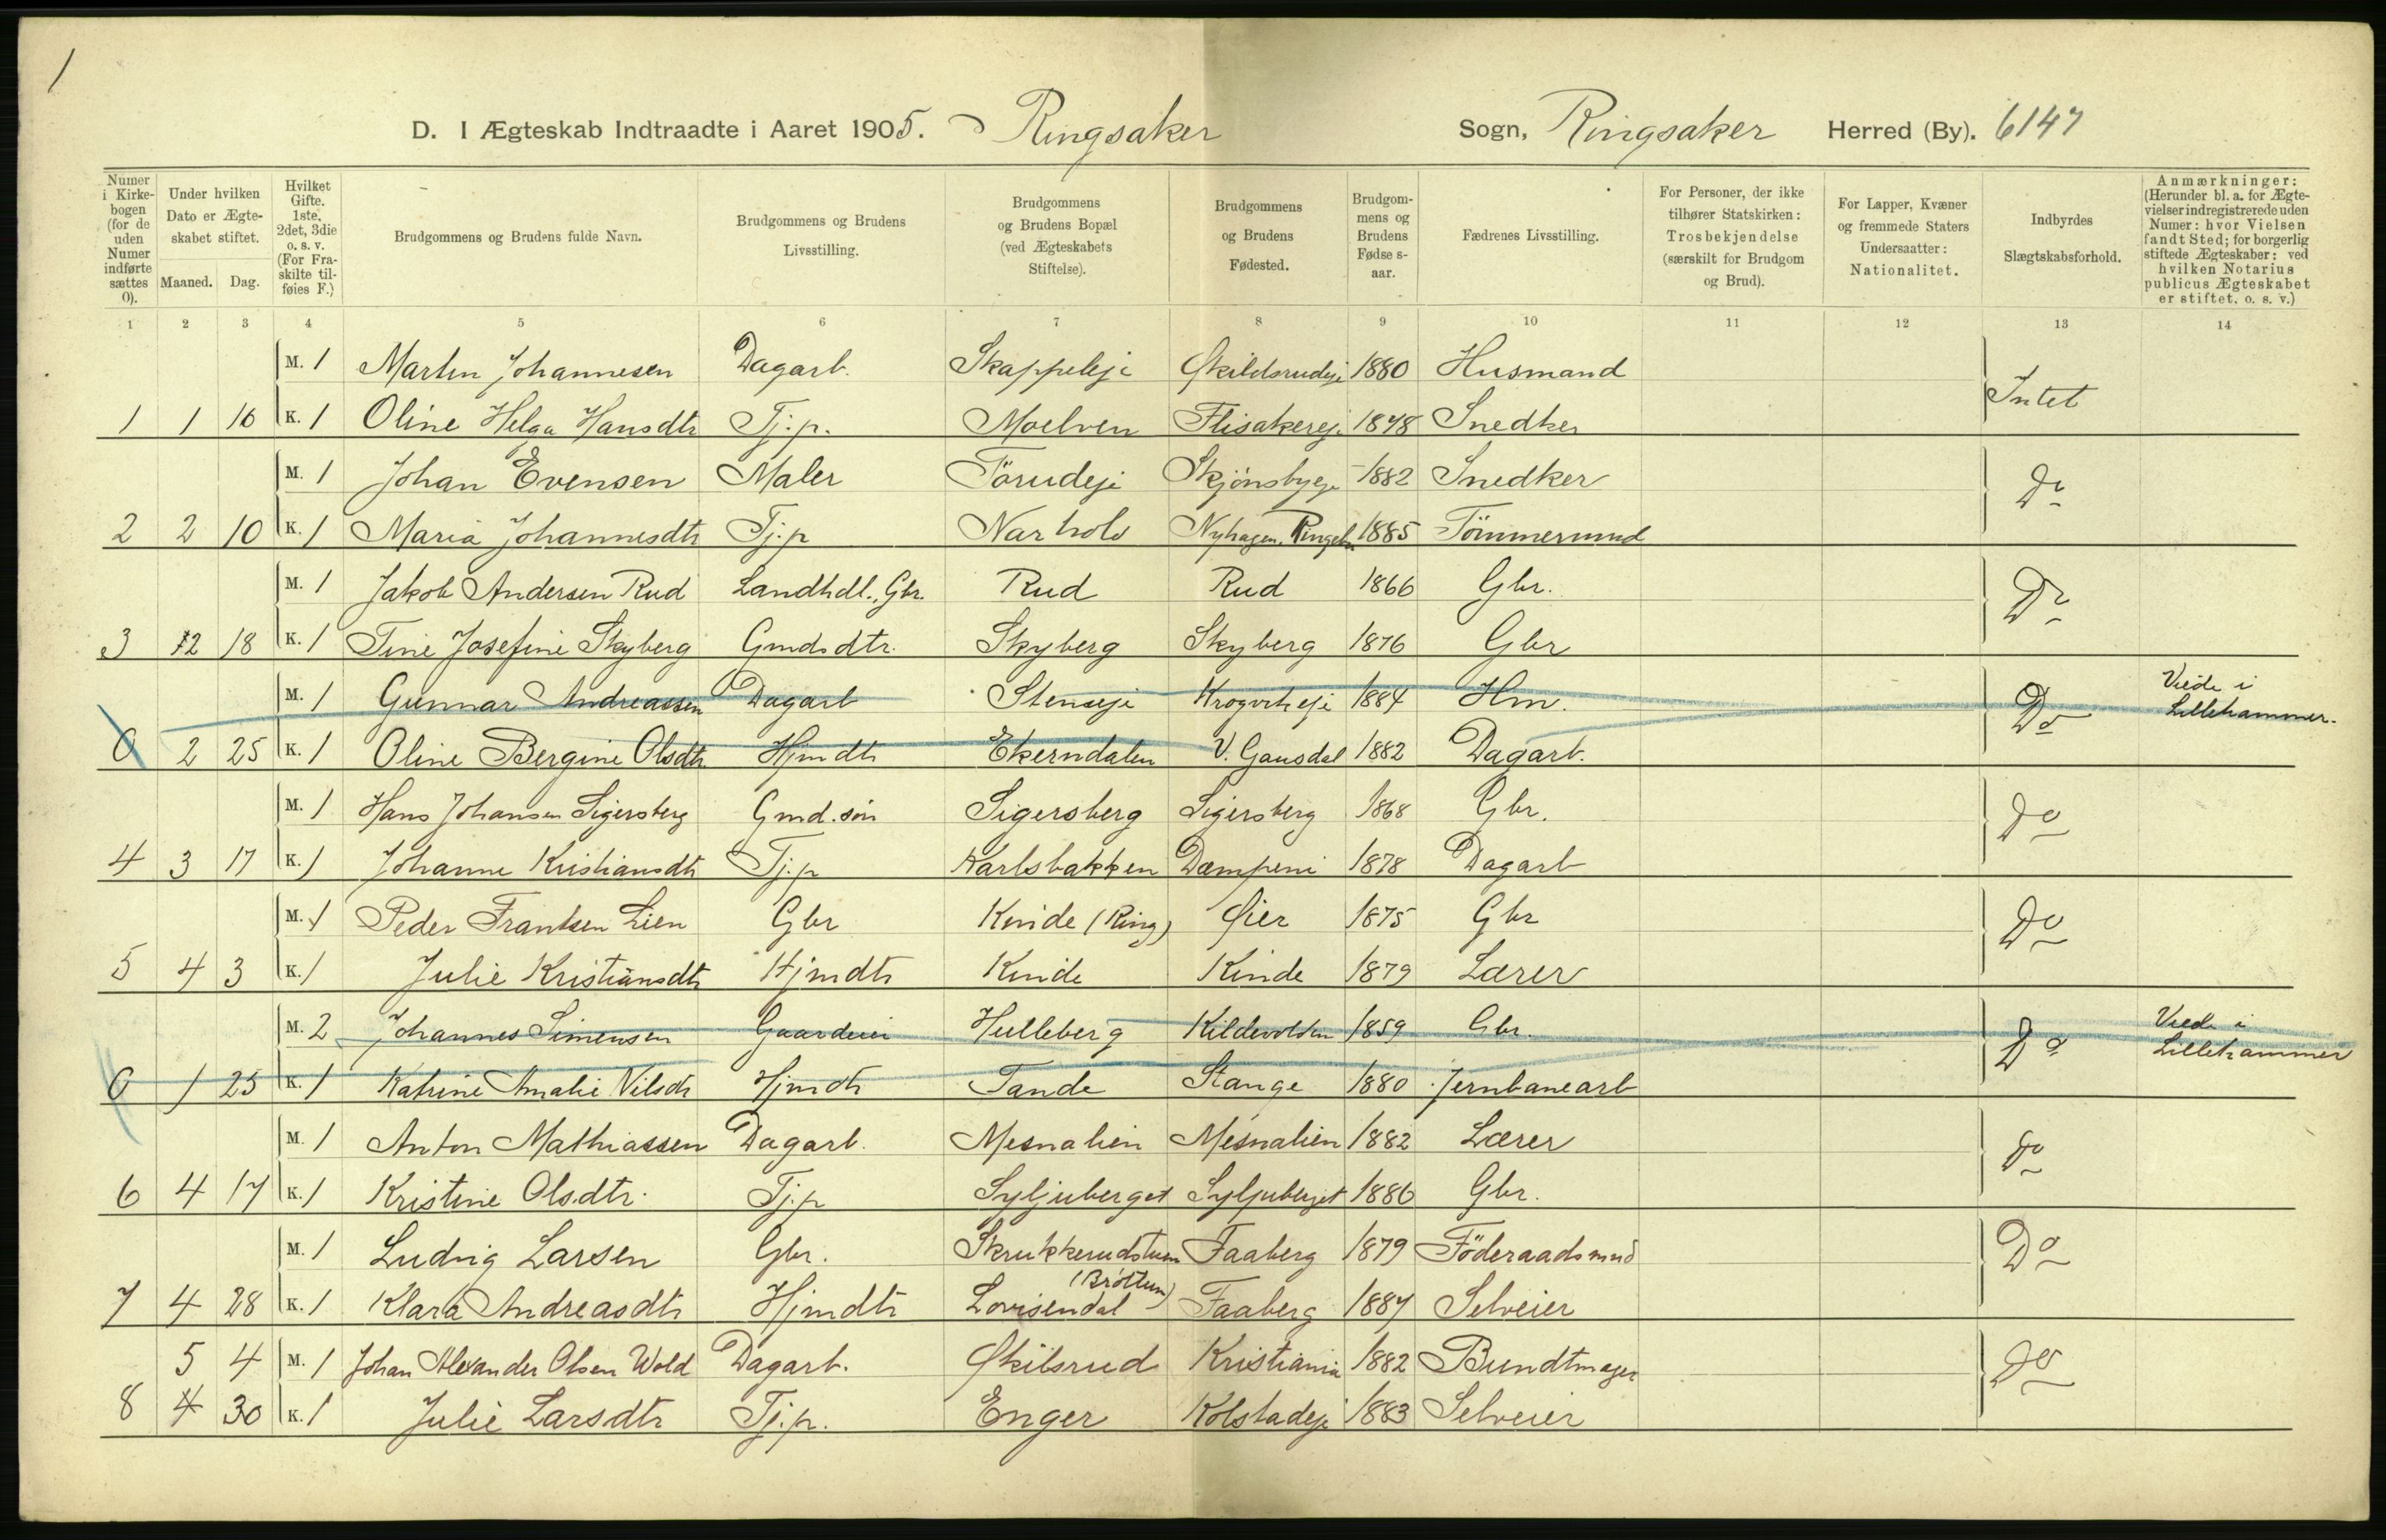 1
D. I Ægteskab Indtraadte i Aaret 1905. Ringsaker Sogn, Ringsaker Herred (By). 6147
Numer i Kirkebogen (for de uden Numer indførte sættes 0).
Under hvilken Dato er Ægteskabet stiftet.
Maaned. Dag.
Hvilket Gifte. 1ste, 2det, 3die o. s. v. (For Fraskilte tilføies F.)
Brudgommens og Brudens fulde Navn.
Brudgommens og Brudens Livsstilling.
Brudgommens og Brudens Bopæl (ved Ægteskabets Stiftelse).
Brudgommens og Brudens Fødested.
Brudgommens og Brudens Fødselsaar.
Fædrenes Livsstilling.
For Personer, der ikke tilhører Statskirken: Trosbekjendelse (særskilt for Brudgom og Brud).
For Lapper, Kvæner og fremmede Staters Undersaatter: Nationalitet.
Indbyrdes Slægtskabsforhold.
Anmærkninger: (Herunder bl. a. for Ægtevielser indregistrerede uden Numer: hvor Vielsen fandt Sted; for borgerlig stiftede Ægteskaber: ved hvilken Notarius publicus Ægteskabet er stiftet, o. s. v.)
1 2 3 4 5 6 7 8 9 10 11 12 13 14
M. 1 Martin Johannesen Dagarb. Skappeleje Økildsrudeje 1880 Husmand Intet
1 1 16 K. 1 Oline Helga Hansdtr Tj.p. Moelven Flisakereje 1878 Snedker
M. 1 Johan Evensen Maler Törudeje Skjönsbyeje 1882 Snedker Do
2 2 10 K. 1 Maria Johannesdtr Tj.p Narholo Nyhagen, Ringebu 1885 Tömmermnd
M. 1 Jakob Andersen Rud Landhdl., Gbr. Rud Rud 1866 Gbr. Do
3 2 18 K. 1 Tine Josefine Skyberg Gmdsdtr. Skyberg Skyberg 1876 Gbr
M. 1 Gunnar Andreassen Dagarb Stenseje 1884 Hm. Do Viede i Lillehammer.
0 2 25 K. 1 Oline Bergine Olsdtr. Hjmdtr Ekerndalen V. Gausdal 1882 Dagarb.
M. 1 Hans Johansen Sigersberg Gmd.sön Sigersberg Sigersberg 1868 Gbr. Do
4 3 17 K. 1 Johanne Kristiansdtr Tj.p Karlsbakken Dæmpeni 1878 Dagarb
M. 1 Peder Frantsen Lien Gbr Kinde (Ring) Øier 1875 Gbr Do
5 4 3 K. 1 Julie Kristiansdtr Hjmdtr Kinde Kinde 1879 Lærer
M. 2 Johannes Simensen Gaardeier Hulleberg Kildevolden 1859 Gbr. Do Viede i Lillehammer
0 1 25 K. 1 Katrine Amalie Nilsdtr Hjmdtr Tande Stange 1880 Jernbanearb
M. 1 Anton Mathiassen Dagarb. Mesnalien Mesnalien 1882 Lærer Do
6 4 17 K. 1 Kristine Olsdtr. Tj.p Syljuberget Syljuberget 1886 Gbr.
M. 1 Ludvig Larsen Gbr. Skrukkerudstuen Faaberg 1879 Föderaadsmnd Do
(Bröttum)
7 4 28 K. 1 Klara Andreasdtr Hjmdtr Lovisendal Faaberg 1887 Selveier
5 4 M. 1 Johan Alexander Olsen Wold Dagarb. Økilsrud Kristiania 1882 Bundtmager Do
8 4 30 K. 1 Julie Larsdtr Tj.p. Enger Kolstadeje 1883 Selveier